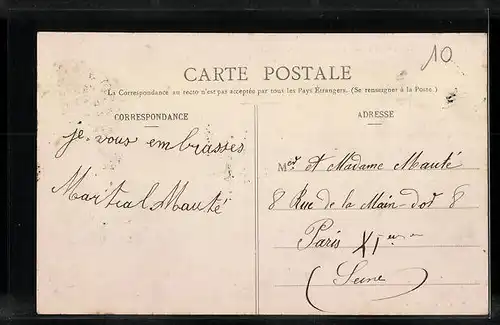 10
CARTE POSTALE
La Correspondance au recto n'est pas acceptée par tous les Pays Étrangers. (Se renseigner à la Poste.)
CORRESPONDANCE
je vous embrasses
Martial Mauté
ADRESSE
M et Madame Mauté
8 Rue de la Main-dor 8
Paris XI eme
(Seine